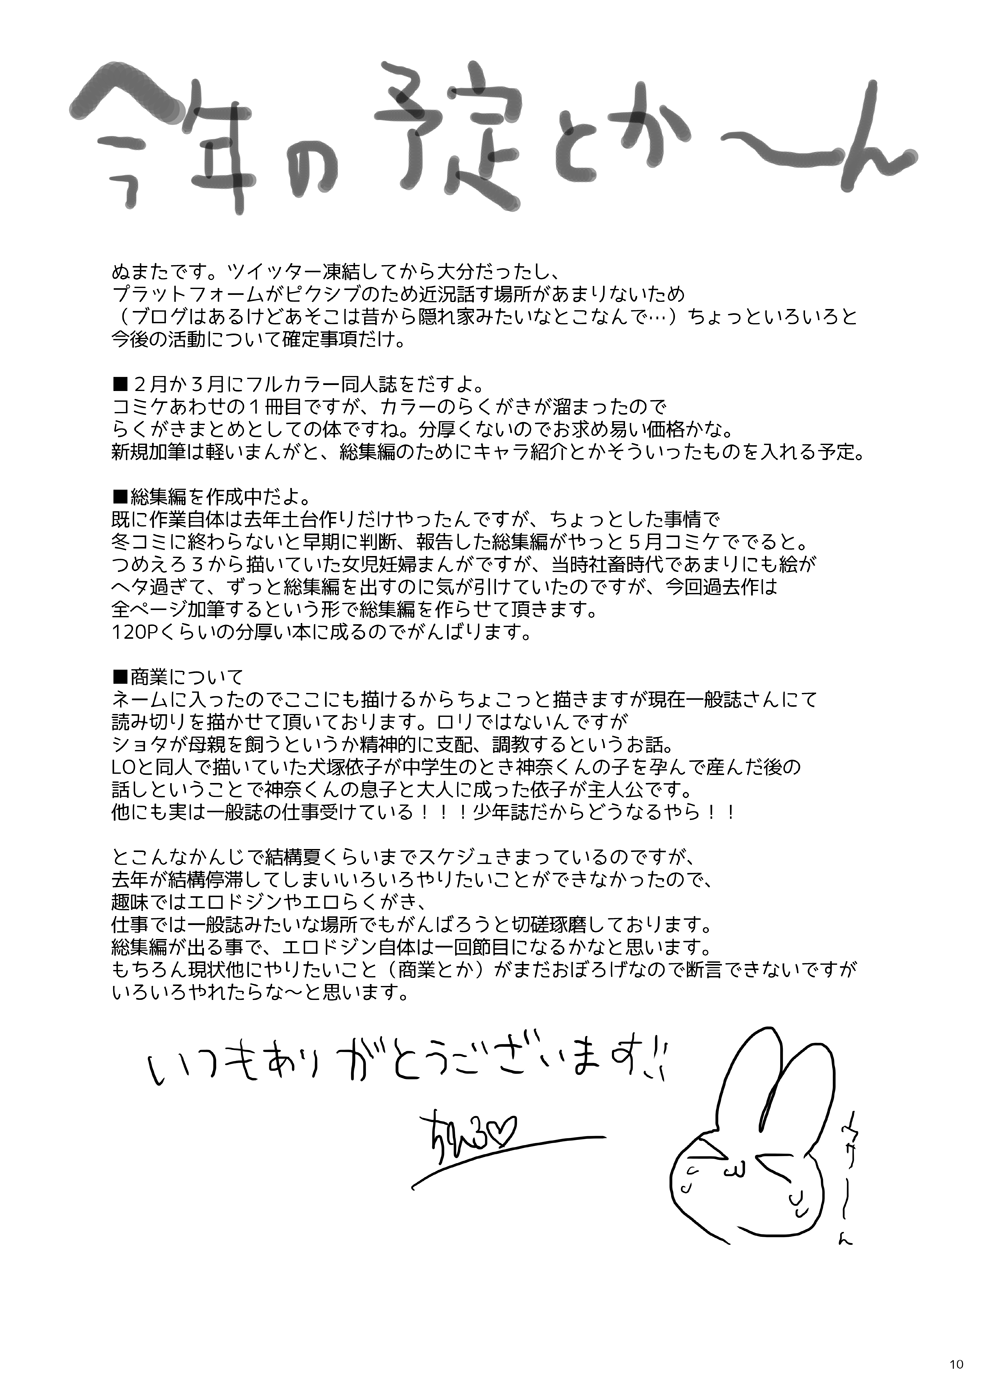 今年の予定とか〜ん
ぬまたです。ツイッター凍結してから大分だったし、
プラットフォームがピクシブのため近況話す場所があまりないため
（ブログはあるけどあそこは昔から隠れ家みたいなとこなんで…）ちょっといろいろと
今後の活動について確定事項だけ。
■２月か３月にフルカラー同人誌をだすよ。
コミケあわせの１冊目ですが、カラーのらくがきが溜まったので
らくがきまとめとしての体ですね。分厚くないのでお求め易い価格かな。
新規加筆は軽いまんがと、総集編のためにキャラ紹介とかそういったものを入れる予定。
■総集編を作成中だよ。
既に作業自体は去年土台作りだけやったんですが、ちょっとした事情で
冬コミに終わらないと早期に判断、報告した総集編がやっと５月コミケででると。
つめえろ３から描いていた女児妊婦まんがですが、当時社畜時代であまりにも絵が
ヘタ過ぎて、ずっと総集編を出すのに気が引けていたのですが、今回過去作は
全ページ加筆するという形で総集編を作らせて頂きます。
120Pくらいの分厚い本に成るのでがんばります。
■商業について
ネームに入ったのでここにも描けるからちょこっと描きますが現在一般誌さんにて
読み切りを描かせて頂いております。ロリではないんですが
ショタが母親を飼うというか精神的に支配、調教するというお話。
LOと同人で描いていた犬塚依子が中学生のとき神奈くんの子を孕んで産んだ後の
話しということで神奈くんの息子と大人に成った依子が主人公です。
他にも実は一般誌の仕事受けている！！！少年誌だからどうなるやら！！
とこんなかんじで結構夏くらいまでスケジュきまっているのですが、
去年が結構停滞してしまいいろいろやりたいことができなかったので、
趣味ではエロドジンやエロらくがき、
仕事では一般誌みたいな場所でもがんばろうと切磋琢磨しております。
総集編が出る事で、エロドジン自体は一回節目になるかなと思います。
もちろん現状他にやりたいこと（商業とか）がまだおぼろげなので断言できないですが
いろいろやれたらな〜と思います。
いつもありがとうございます!!
10